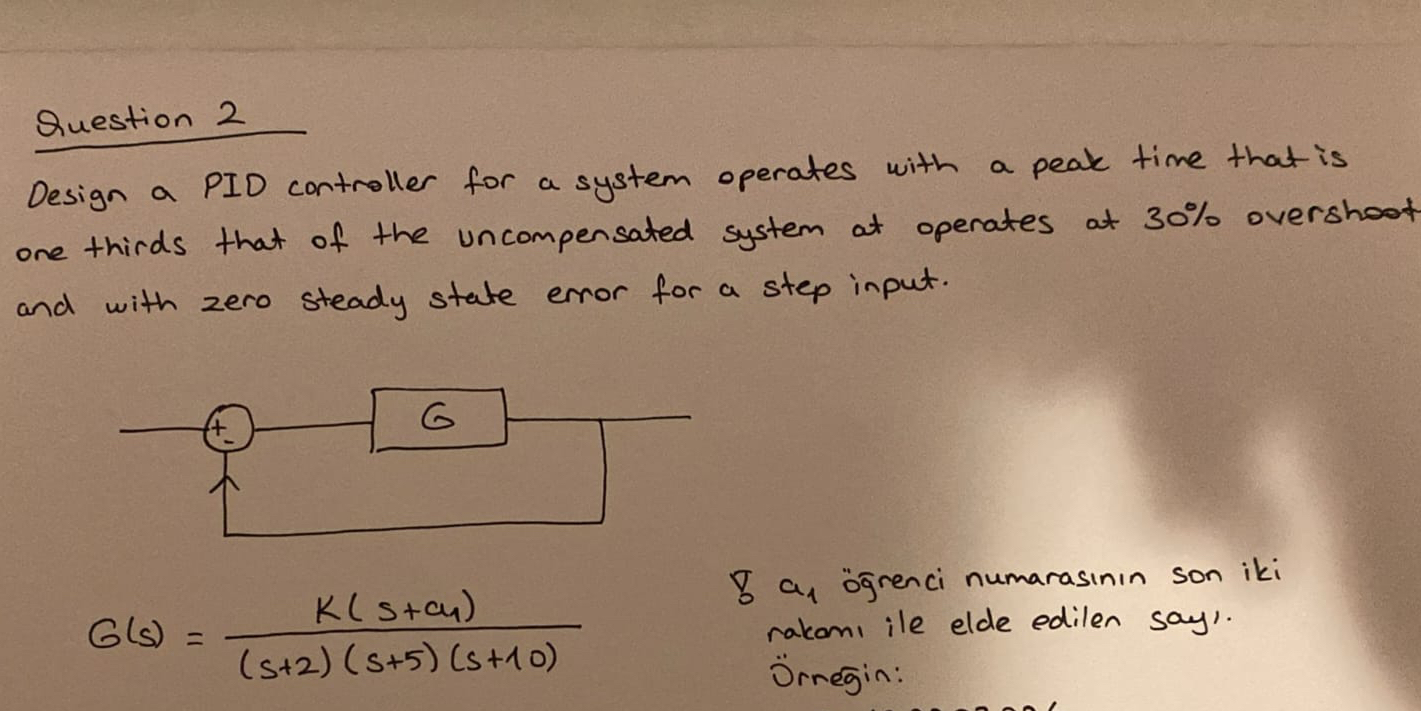 Question 2
Design a PID controller for a system operates with a peak time that is
one thirds that of the uncompensated system at operates at 30% overshoot
and with zero steady state error for a step input.
+
-
G
G(s) = K(s+a1) / (s+2)(s+5)(s+10)
! a1 öğrenci numarasının son iki
rakamı ile elde edilen sayı.
Örneğin: